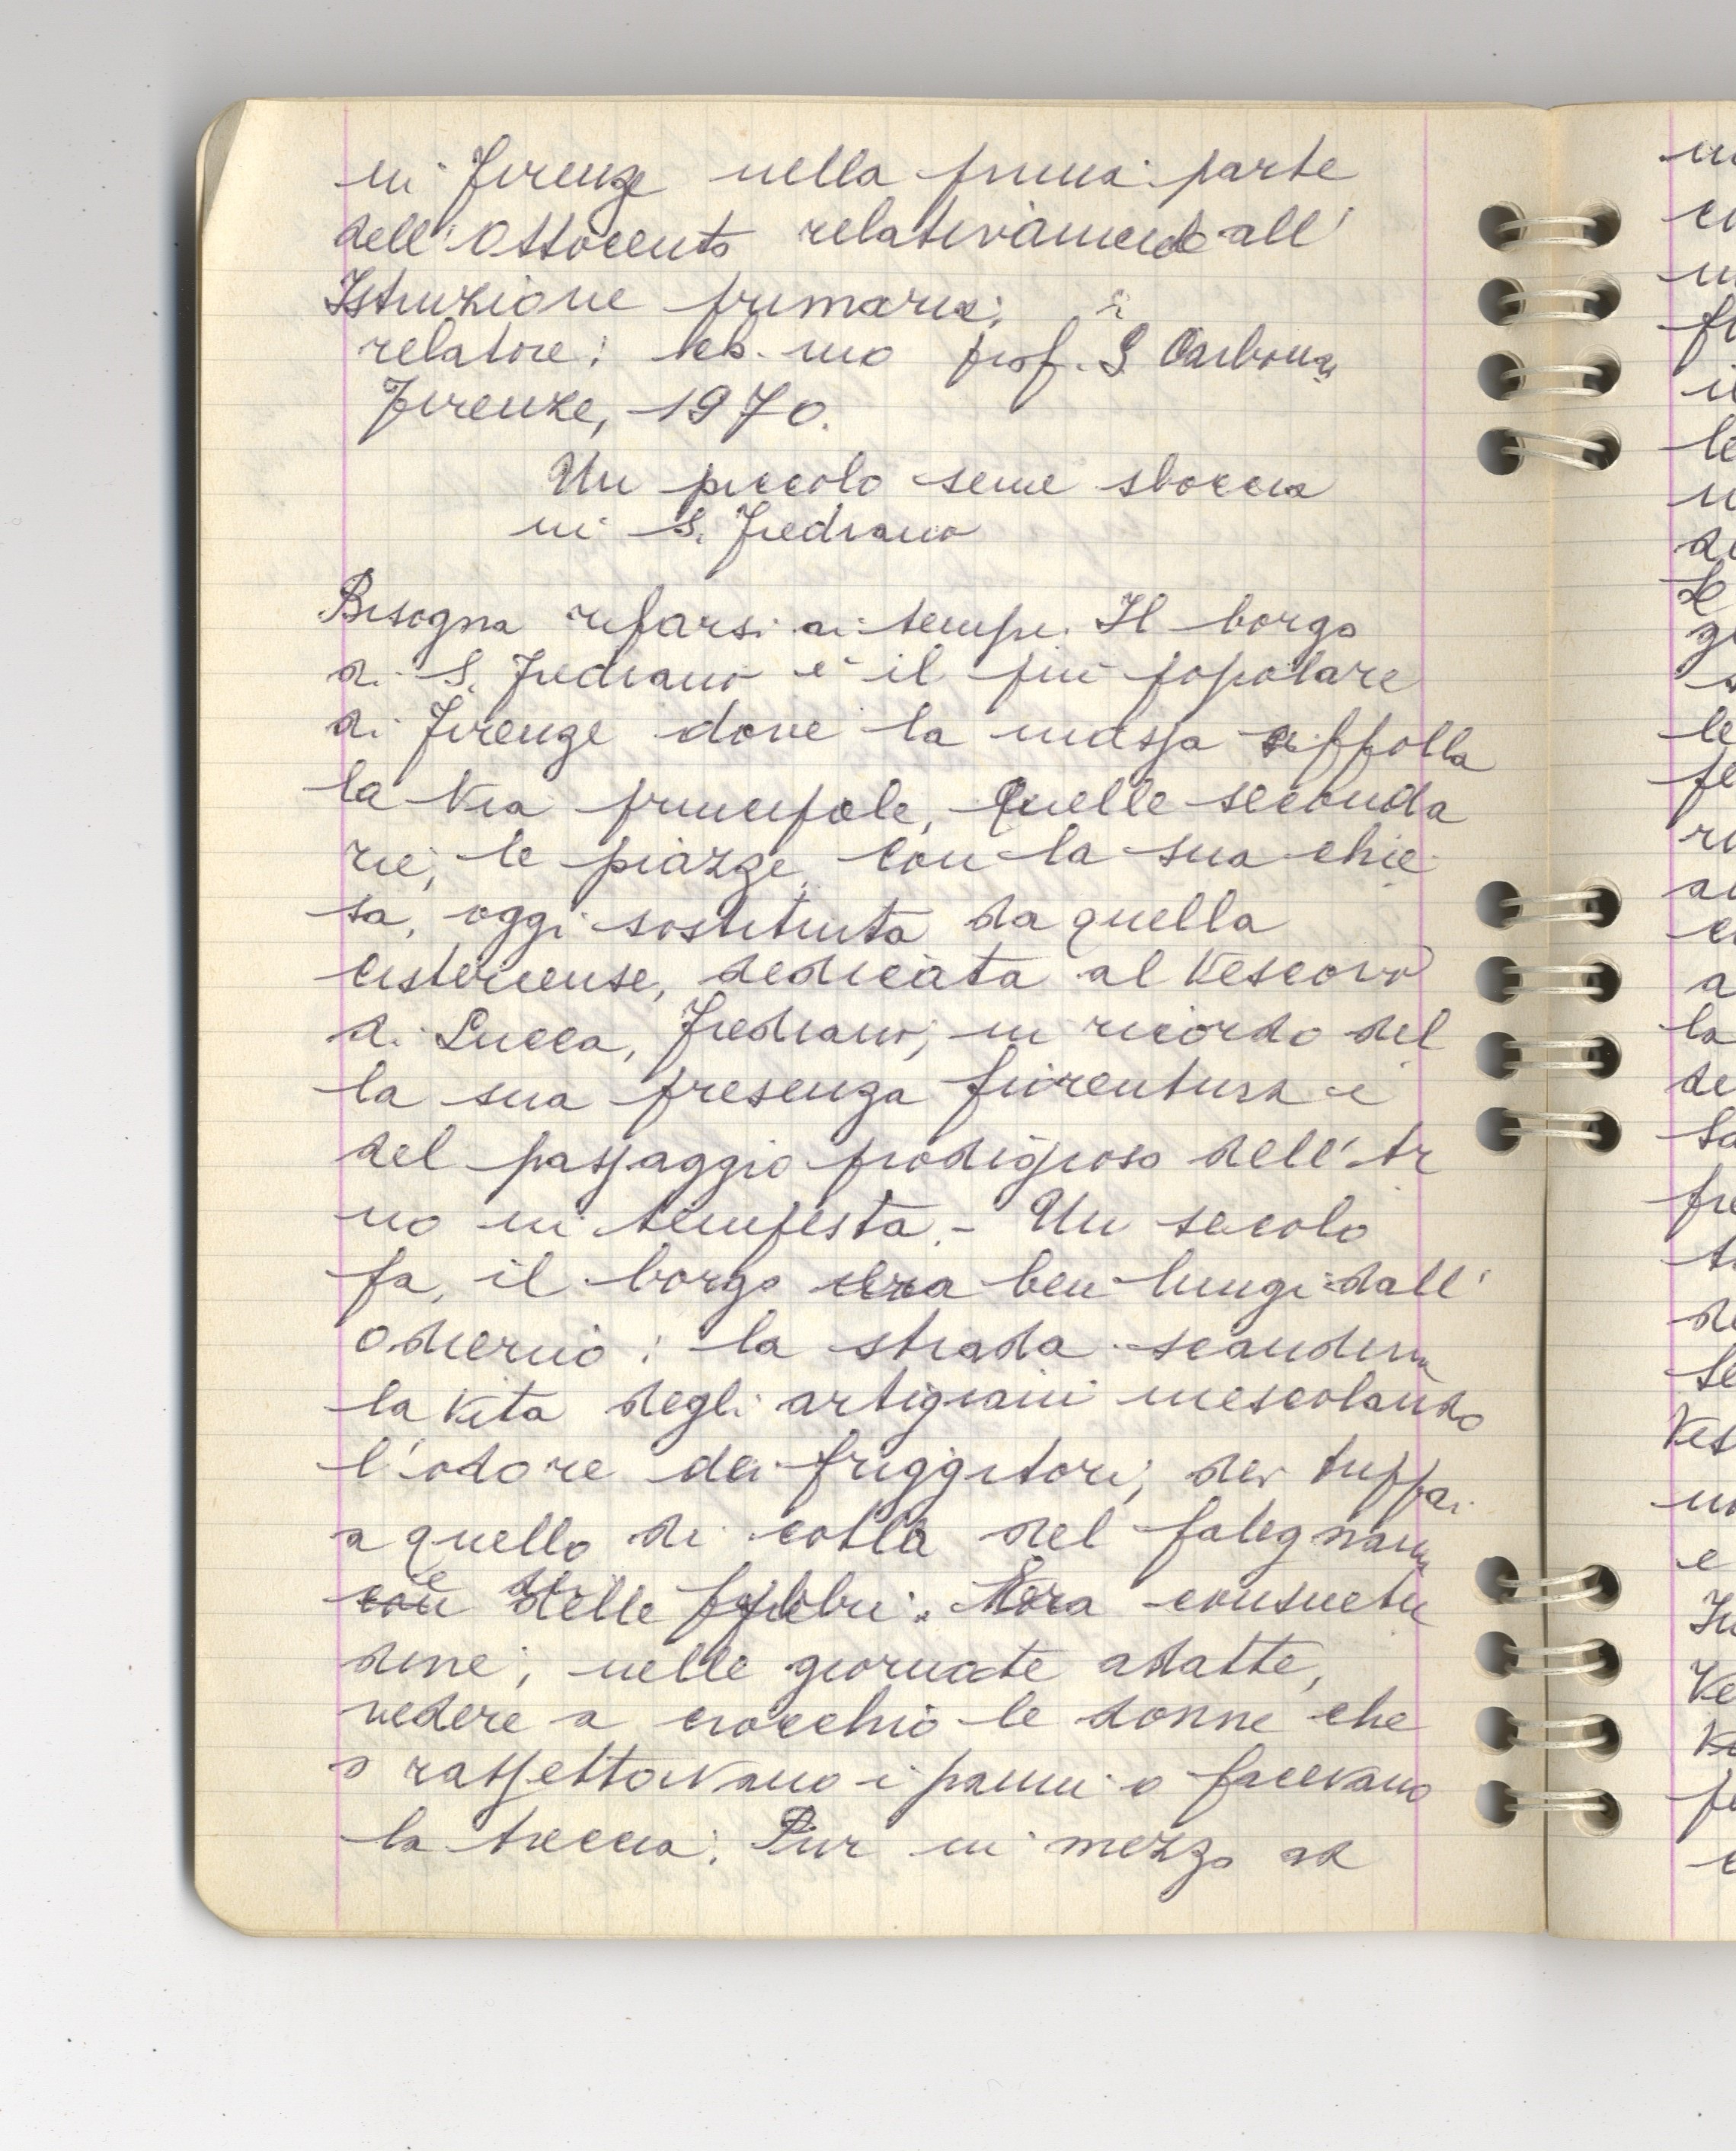 in Firenze nella prima parte
dell'Ottocento relativamente all'
Istruzione primaria;
relatore: prof. S. Carbone
Firenze, 1970.
Un piccolo seme sboccia
in S. Frediano
Bisogna rifarsi ai tempi. Il borgo
di S. Frediano è il più popolare
di Firenze dove la massa affolla
la Via principale, quelle seconda
rie, le piazze, con la sua chie
sa, oggi sostituita da quella
cistercense, dedicata al Vescovo
di Lucca, Frediano, in ricordo del
la sua presenza fiorentina e
del passaggio prodigioso dell'Ar
no in tempesta. - Un secolo
fa, il borgo era ben lungi dall'
odierno: la strada scandiva
la vita degli artigiani mescolando
l'odore dei friggitori, dei trippai
a quello di colla del falegname
con delle fabbri. Era consuetu
dine, nelle giornate adatte,
vedere a crocchio le donne che
o rassettavano i panni o facevano
la treccia. Pur in mezzo ad